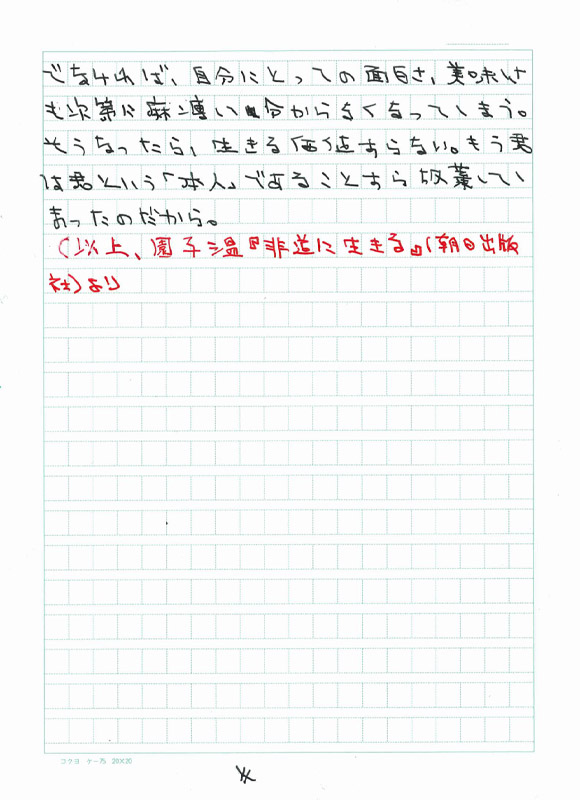 でなければ、自分にとっての面白さ、美味しさ
も次第に麻痺し分からなくなってしまう。
そうなったら、生きる価値すらない。もう君
は君という「本人」であることすら放棄してし
まったのだから。
(以上、園子温『非道に生きる』(朝日出版
社)より
コクヨ ケー75 20×20